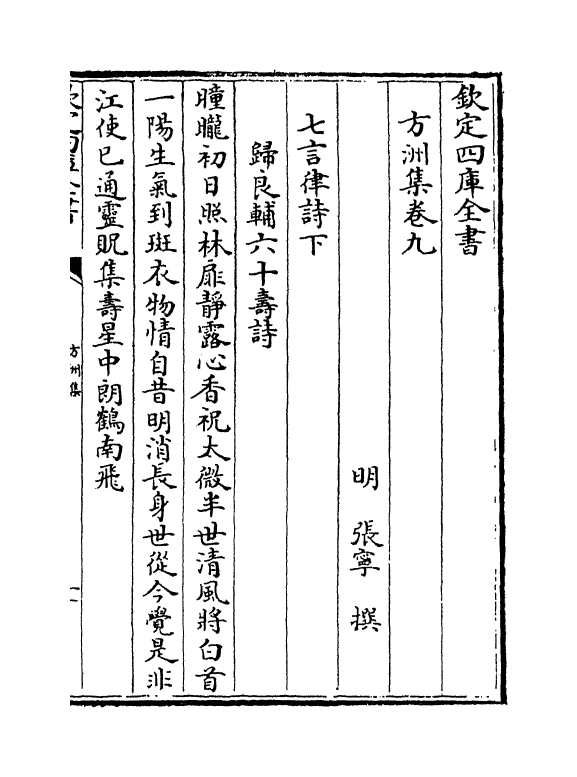 欽定四庫全書
方洲集卷九
明 張寧 撰
七言律詩下
歸良輔六十壽詩
曈曨初日照林扉靜露心香祝太微半世清風將白首
一陽生氣到斑衣物情自昔明消長身世從今覺是非
江使已通靈貺集壽星中朗鶴南飛
方州集